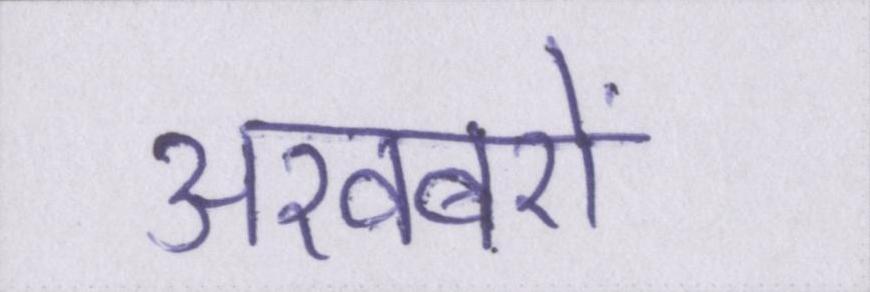 अखबरों